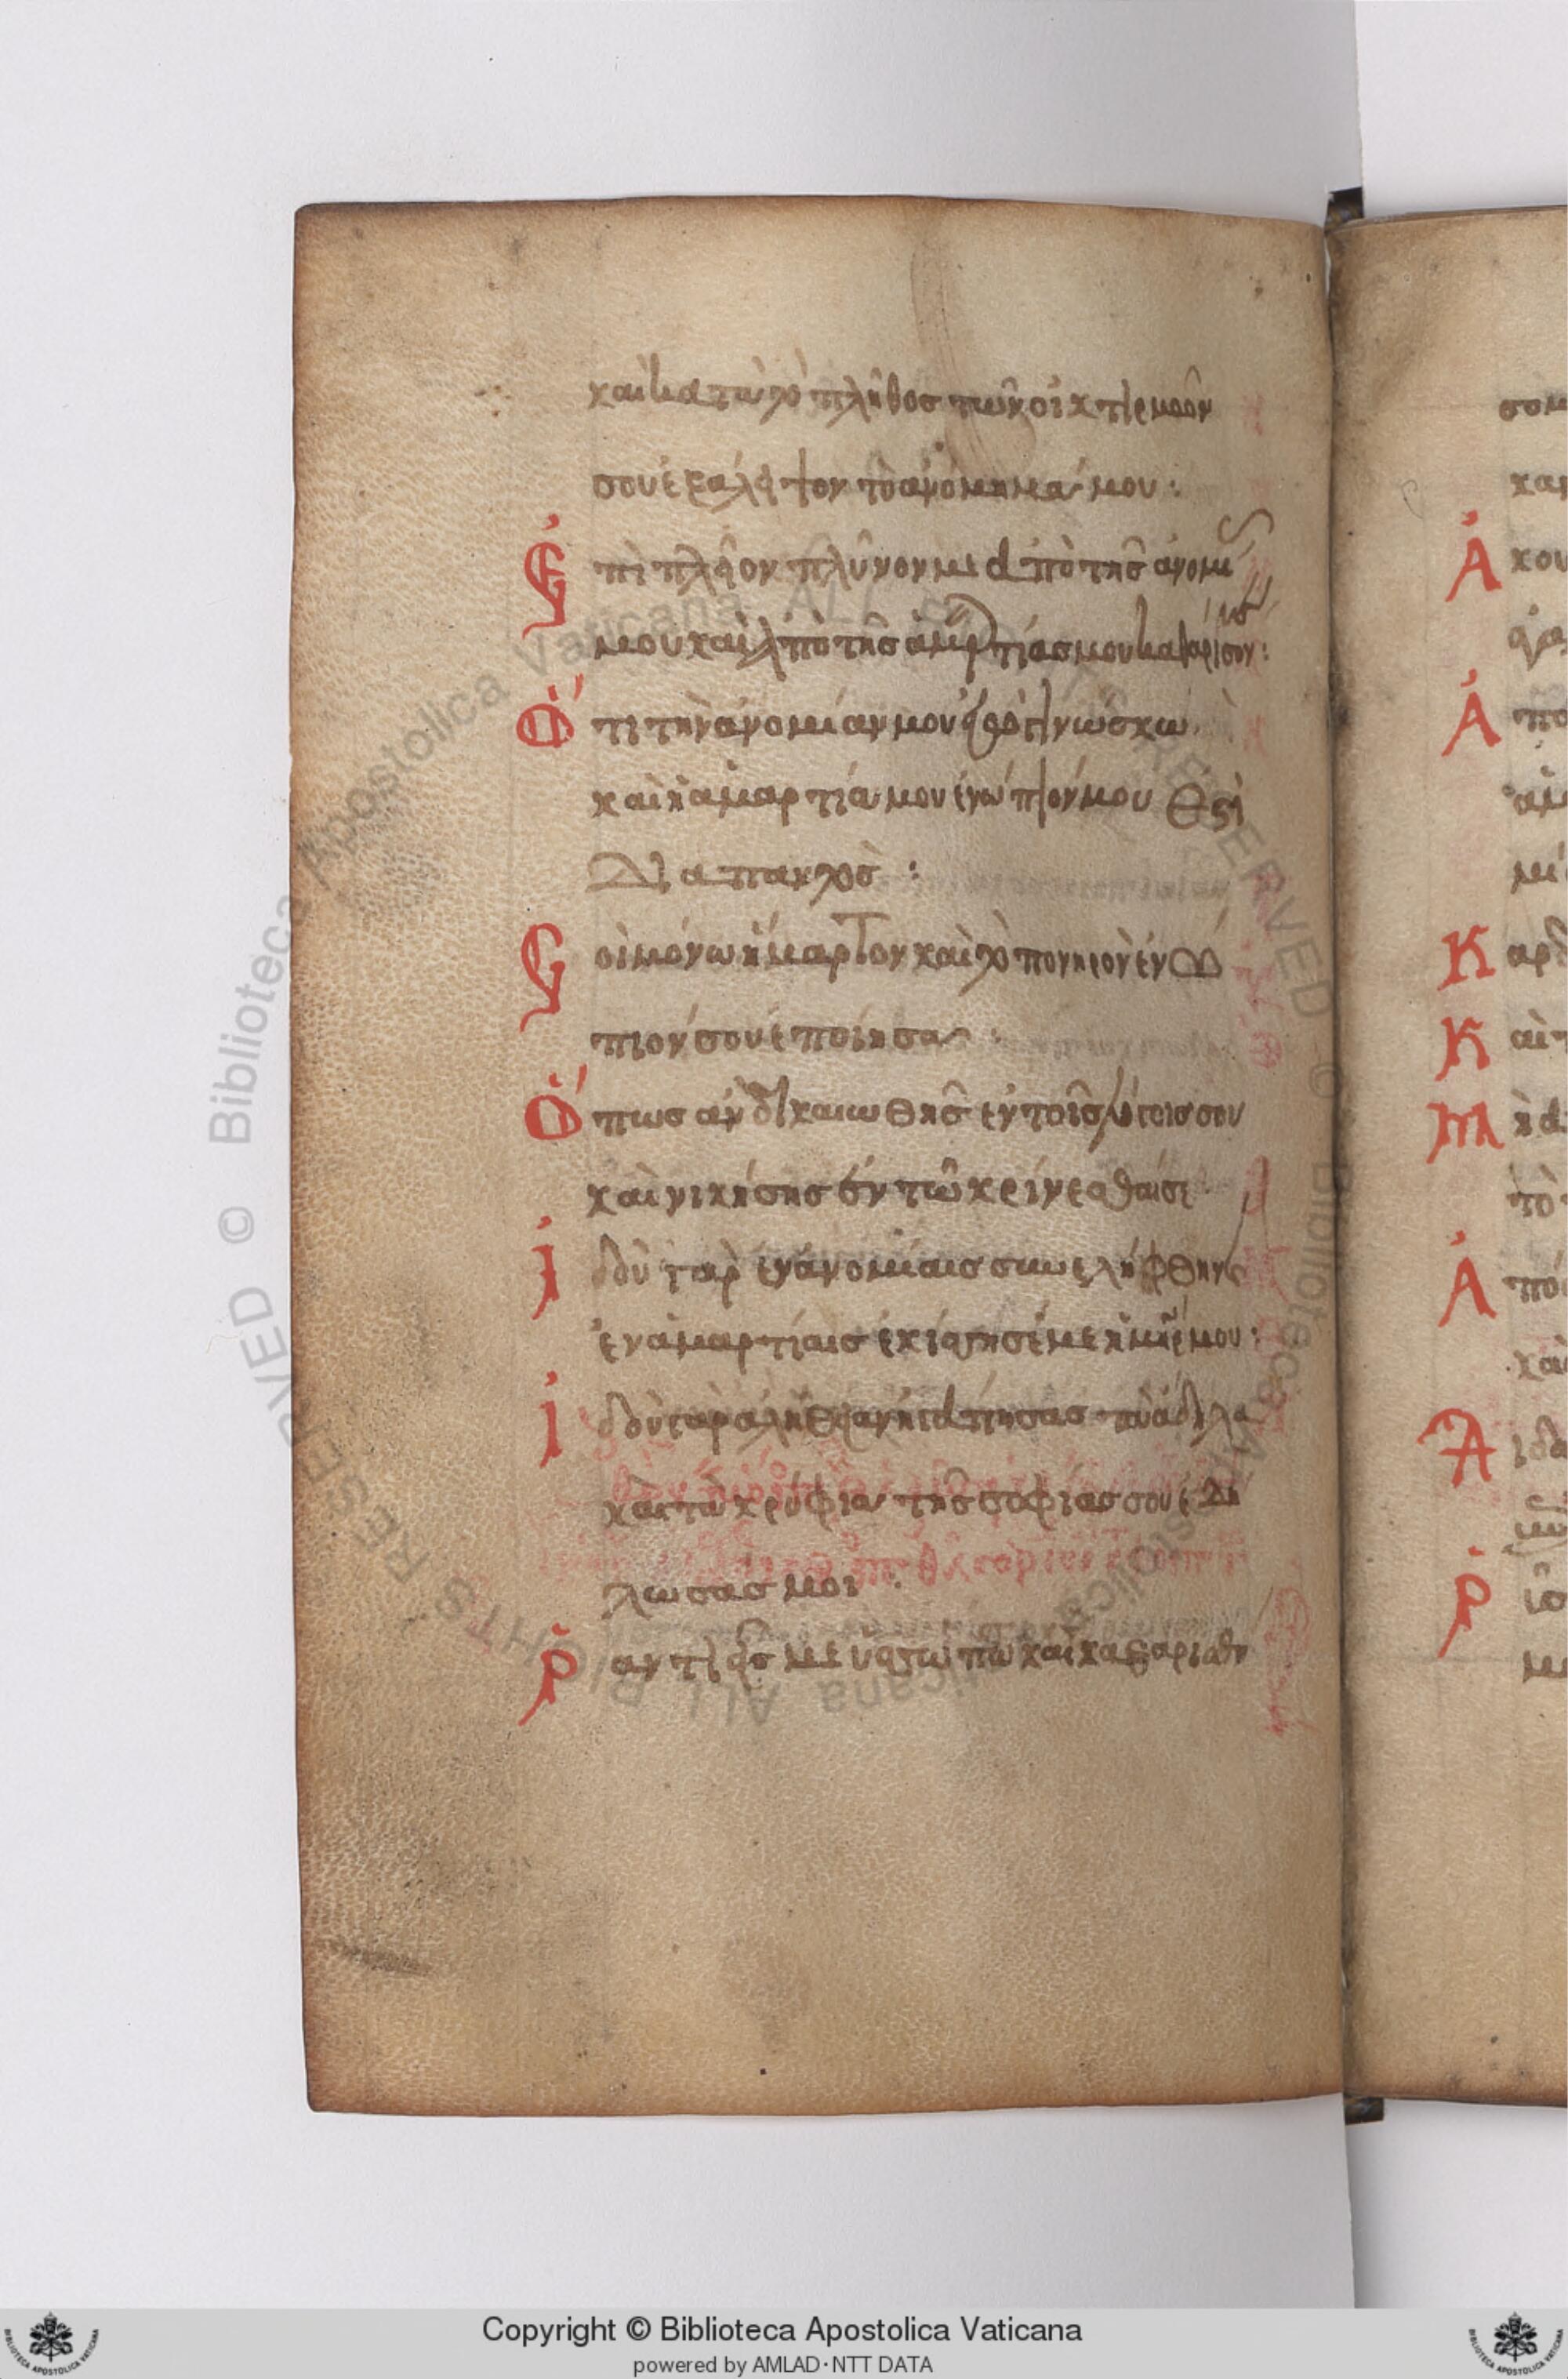 καὶ κατὰ τὸ πλῆθος τῶν οἰκτιρμῶν
σου ἐξάλειψον τὸ ἀνόμημά μου:
Ἐπὶ πλεῖον πλῦνόν με ἀπὸ τῆς ἀνομίας
μου καὶ ἀπὸ τῆς ἁμαρτίας μου καθάρισόν με:
Ὅτι τὴν ἀνομίαν μου ἐγὼ γινώσκω
καὶ ἡ ἁμαρτία μου ἐνώπιόν μου ἐστὶ
διαπαντὸς:
Σοὶ μόνω ἥμαρτον καὶ τὸ πονηρὸν ἐνώ
πιόν σου ἐποίησα:
Ὅπως ἂν δικαιωθῆς ἐν τοῖς λόγοις σου
καὶ νικήσης ἐν τῶ κρίνεσθαί σε
Ἰδοὺ γὰρ ἐν ἀνομίαις συνελήφθην
ἐν ἁμαρτίαις ἐκίσσησέ με ἡ μηρ μου:
Ἰδοὺ γὰρ ἀλήθειαν ἠγάπησας τὰ ἄδηλα
καὶ τὰ κρύφια τῆς σοφίας σου ἐδή
λωσάς μοι:
Ῥαντιεῖς με ὑσσώπω καὶ καθαρισθή
Copyright © Biblioteca Apostolica Vaticana
powered by AMLAD·NTT DATA